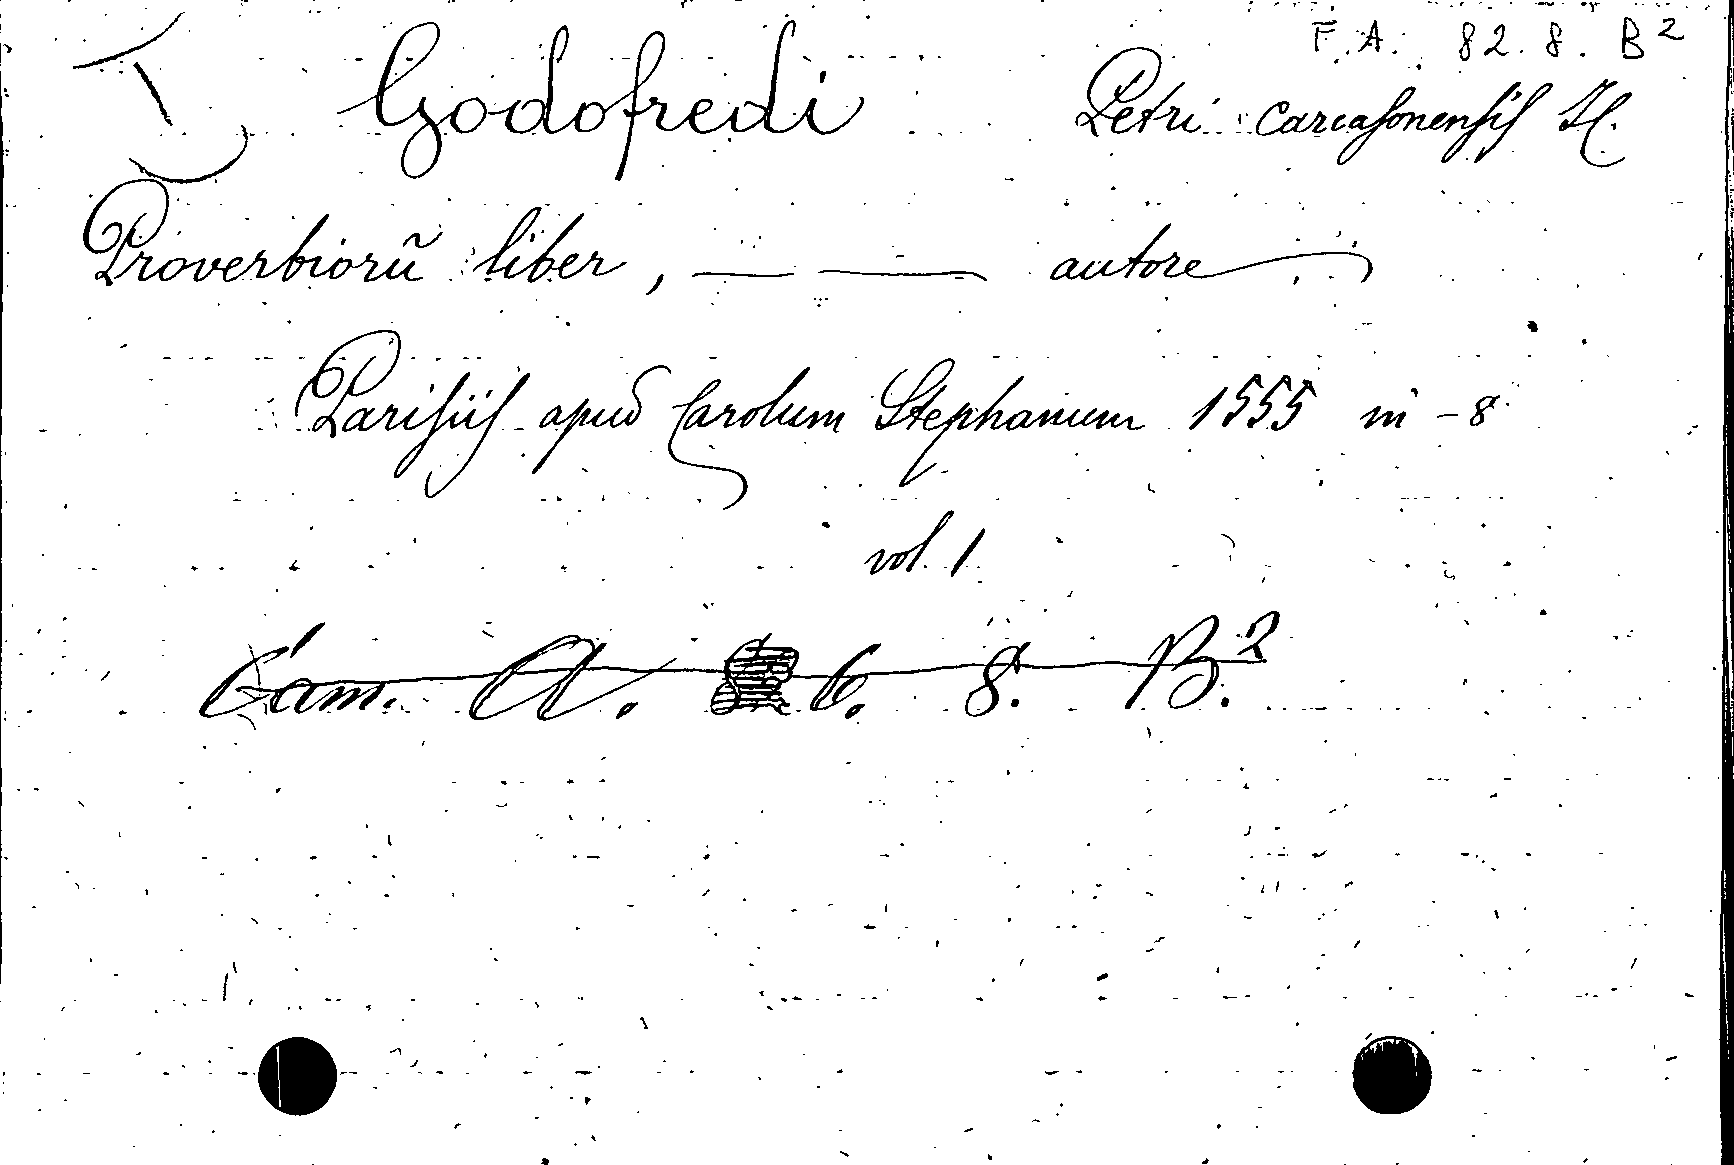 F.A. 82. 8. B²
Godofredi Petri Carcasonensis
Proverbiorũ liber, — — autore
Parisiis apud Carolum Stephanum 1555 in-8
vol. 1
Cam. A. 6. 8. B.²